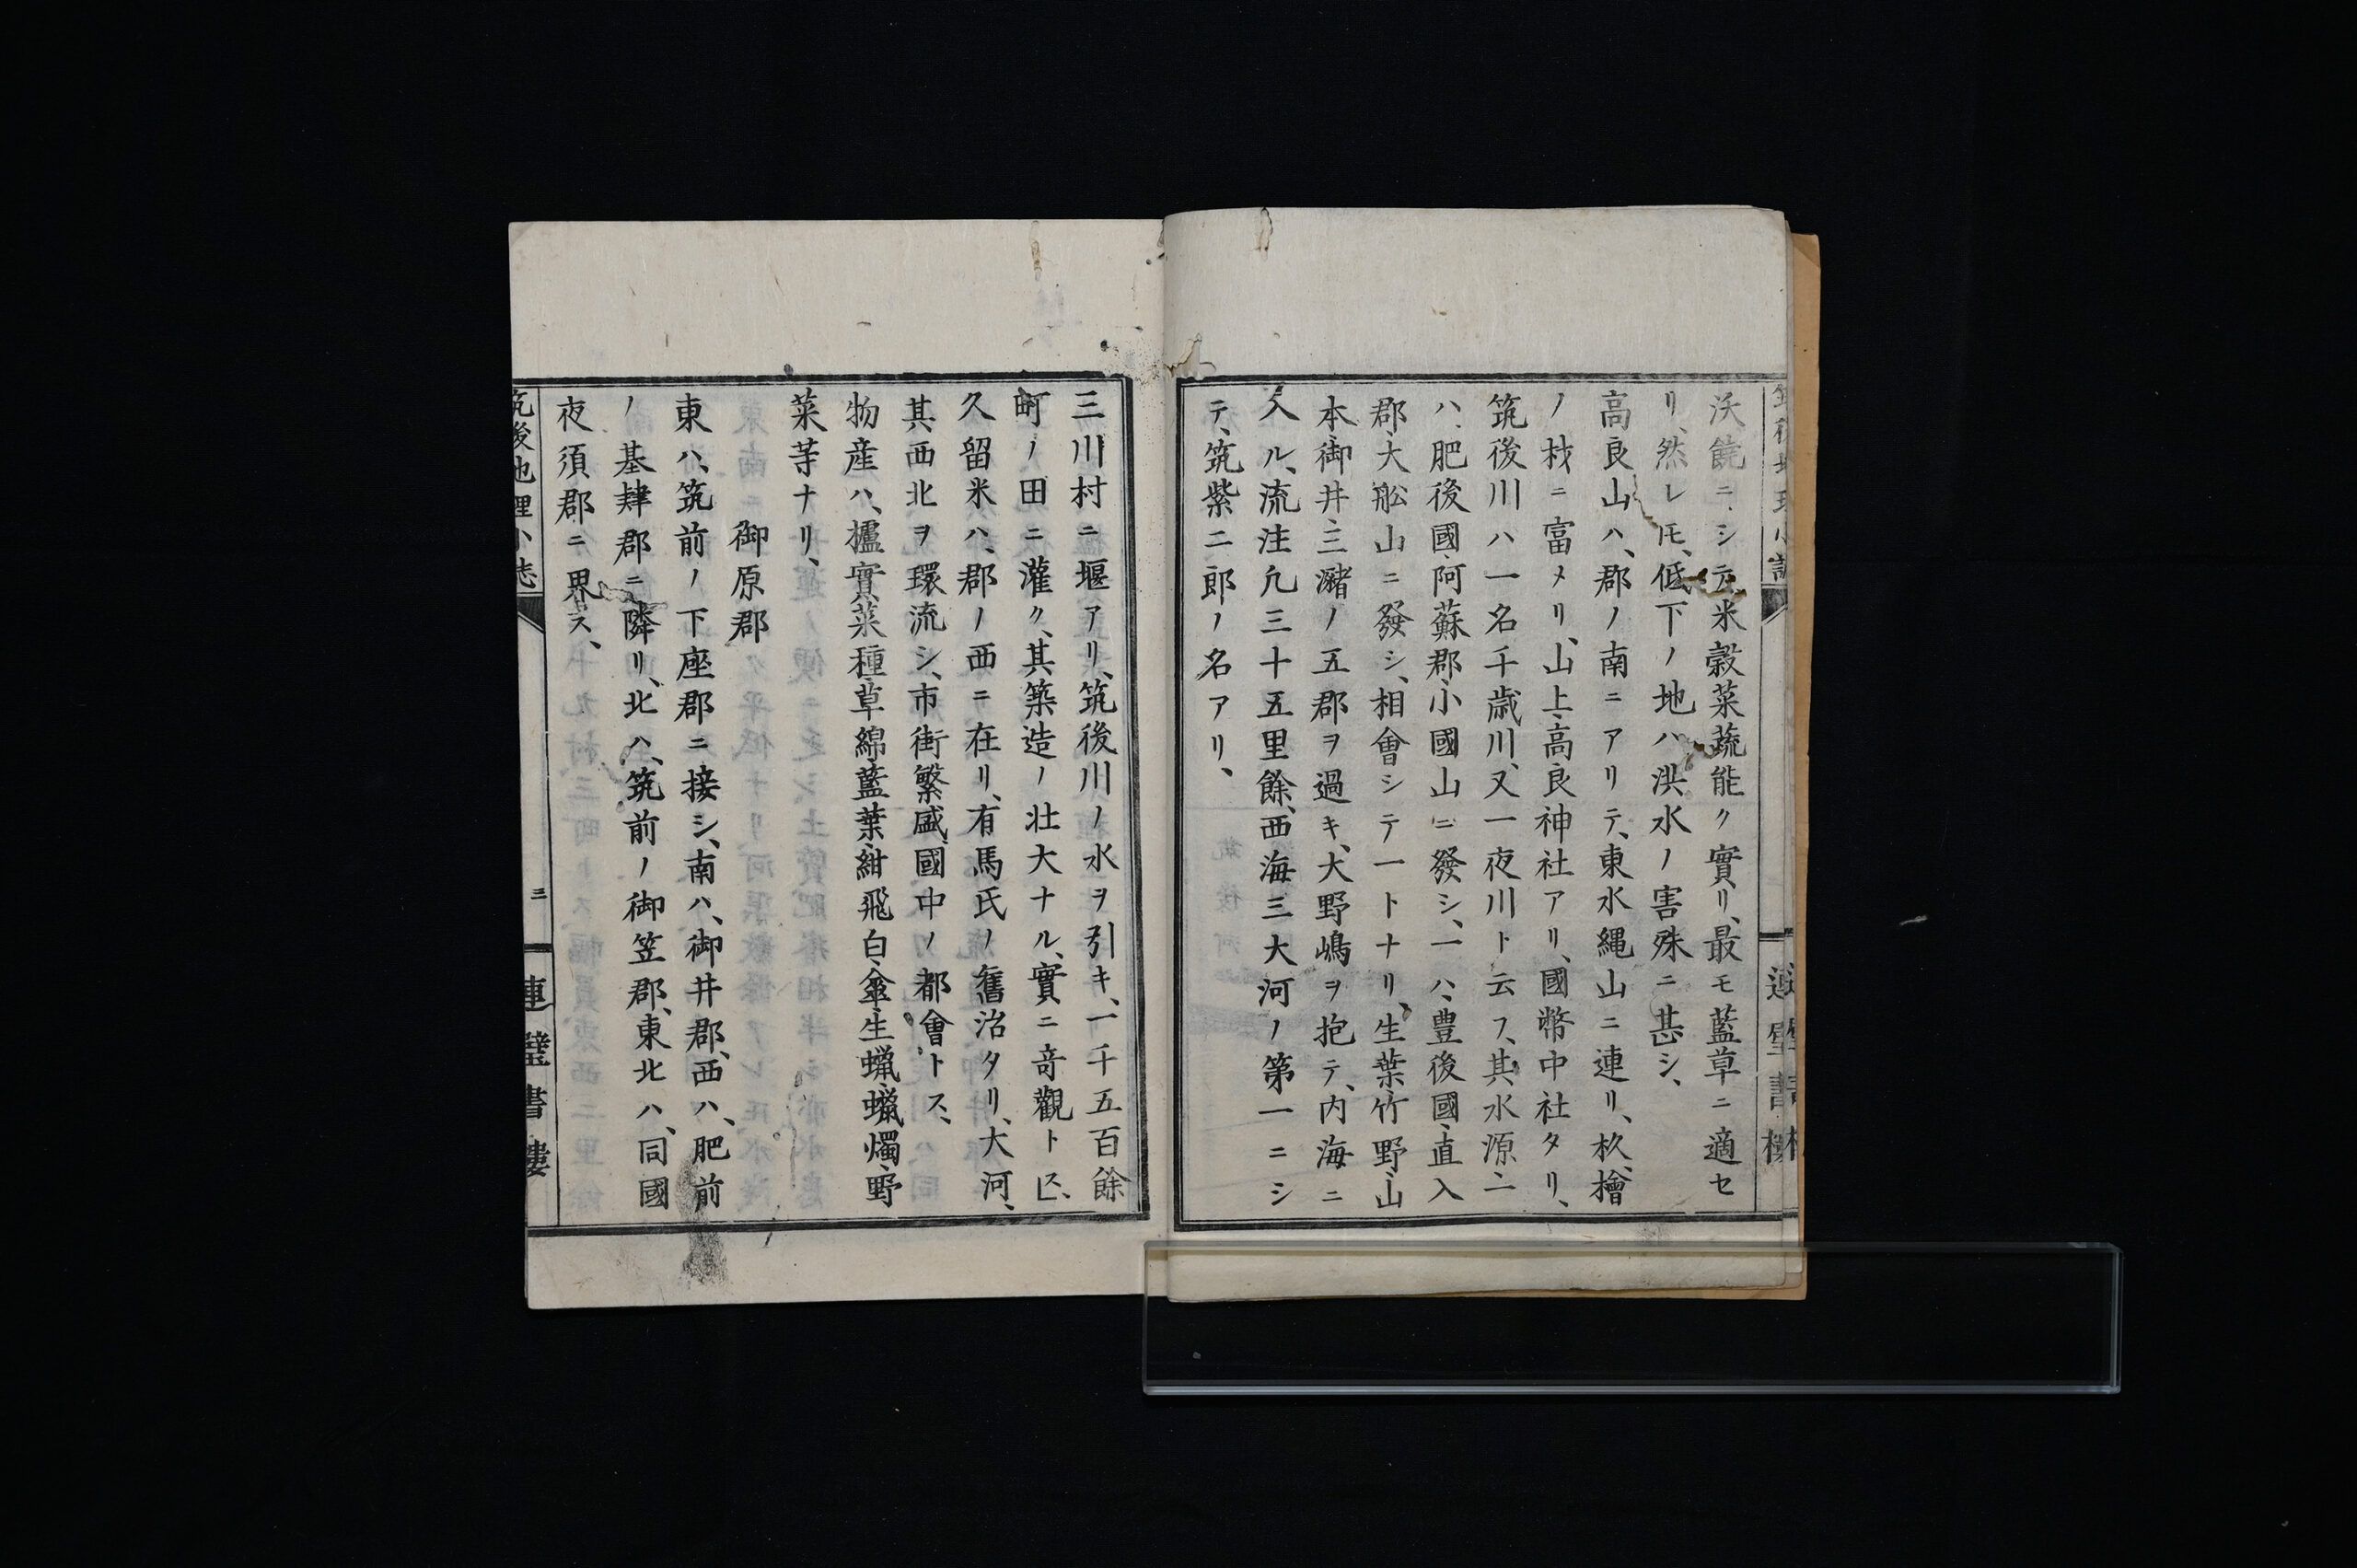 沃饒ニシテ、米穀菜蔬能ク實リ、最モ藍草ニ適セ
リ、然レ𪜈、低下ノ地ハ洪水ノ害殊ニ甚シ、
高良山ハ、郡ノ南ニアリテ、東水縄山ニ連リ、杦、檜
ノ材ニ富メリ、山上高良神社アリ、國幣中社タリ、
筑後川ハ一名千歳川、又一夜川ト云フ、其水源二
ハ、肥後國阿蘇郡小國山ニ發シ、一ハ、豊後國直入
郡大舩山ニ發シ、相會シテ一トナリ、生葉竹野山
本御井三潴ノ五郡ヲ過キ、大野嶋ヲ抱テ、内海ニ
入ル、流注凢三十五里餘、西海三大河ノ第一ニシ
テ、筑紫二郎ノ名アリ、
三川村ニ堰アリ、筑後川ノ水ヲ引キ、一千五百餘
町ノ田ニ灌ク、其築造ノ壮大ナル、實ニ竒觀トス、
久留米ハ、郡ノ西ニ在リ、有馬氏ノ舊治タリ、大河、
其西北ヲ環流シ、市街繁盛國中ノ都會トス、
物産ハ、櫨實菜種草綿藍葉紺飛白傘生蝋蝋燭野
菜等ナリ、
御原郡
東ハ、筑前ノ下座郡ニ接シ、南ハ、御井郡、西ハ、肥前
ノ基肄郡ニ隣リ、北ハ、筑前ノ御笠郡、東北ハ、同國
夜須郡ニ界ス、
筑後地理小志
三
連璧書樓